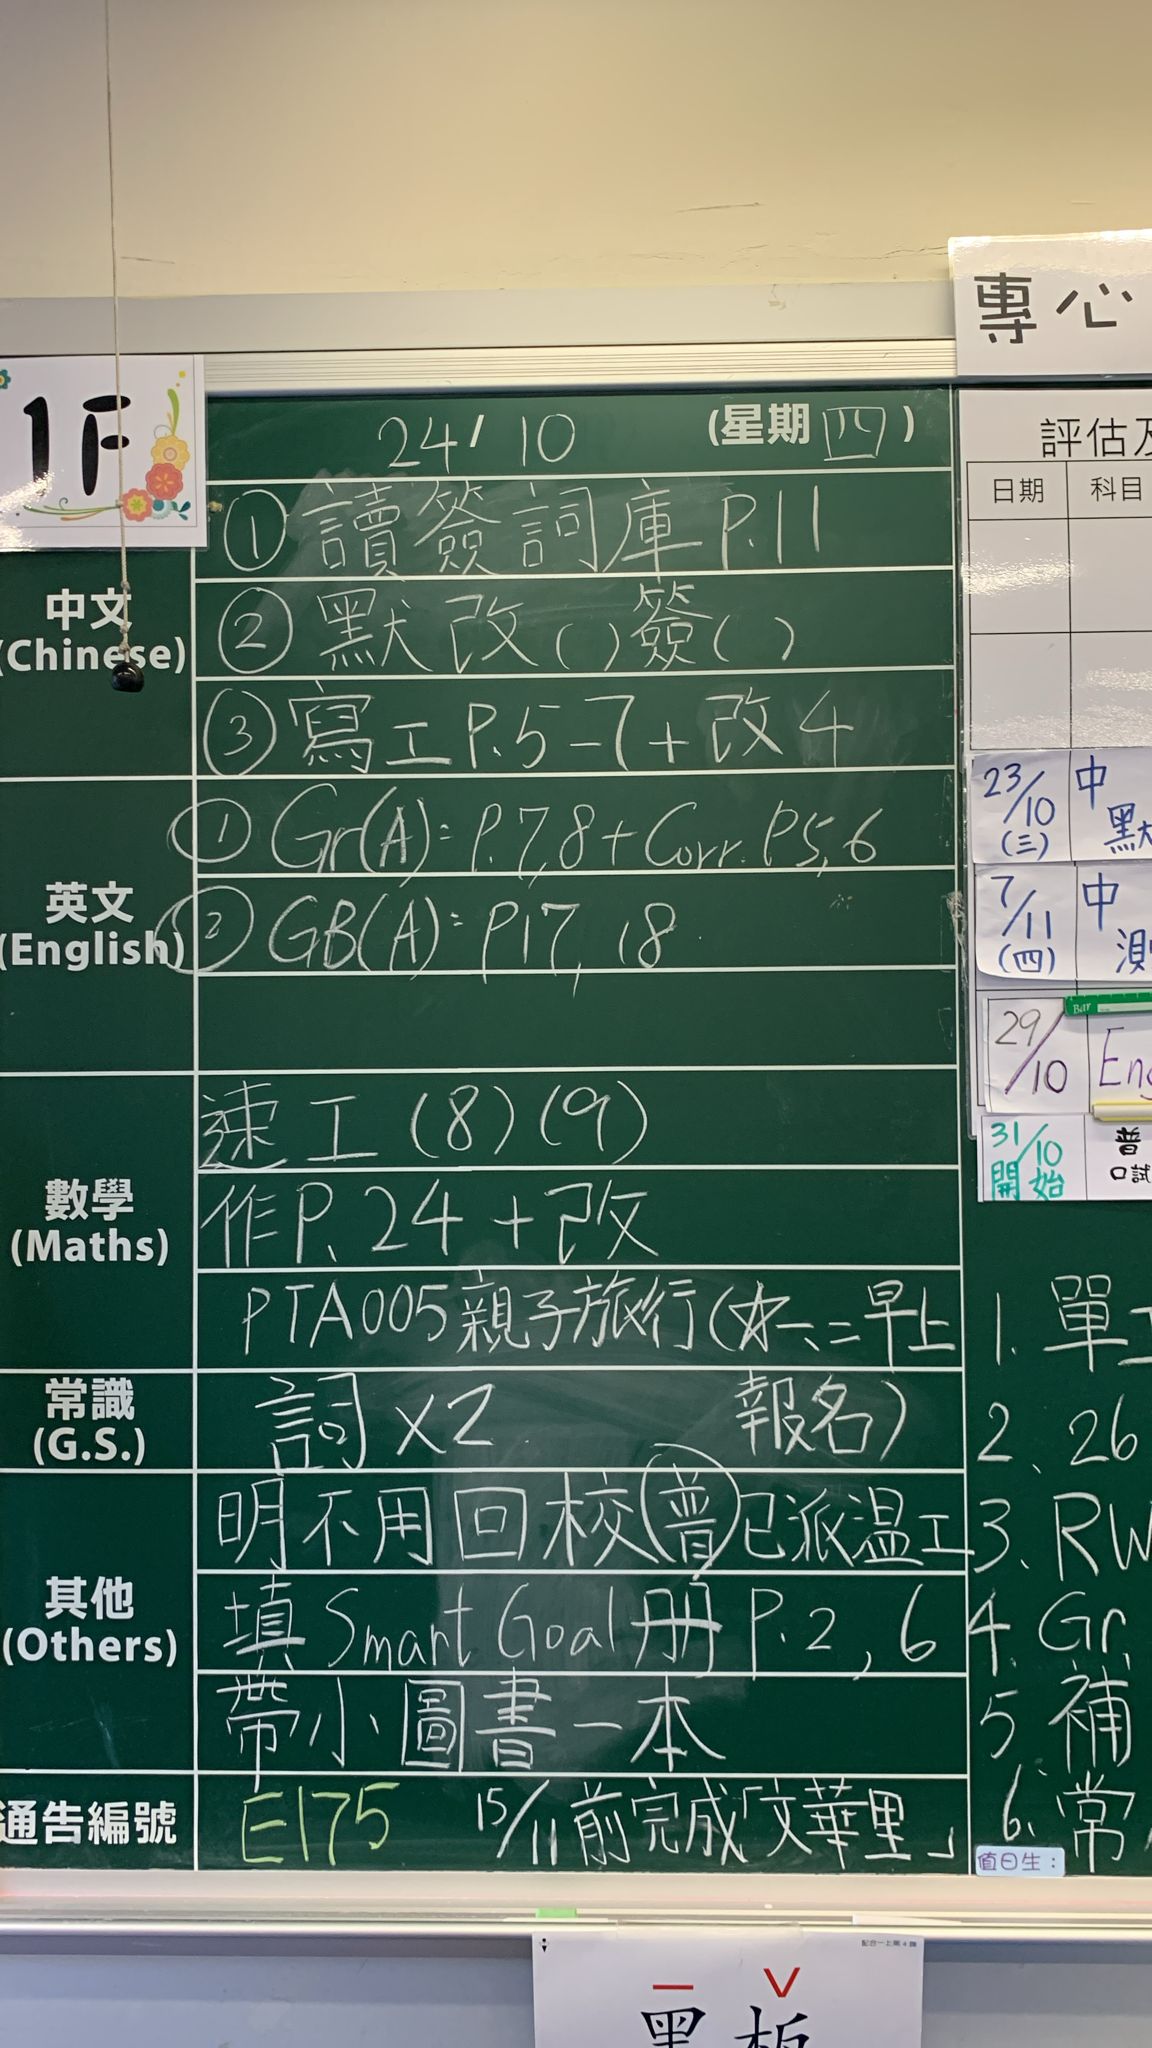 專心
1F
24/10 (星期四)
評估及
日期 科目
中文
(Chinese)
① 讀簽詞庫 P.11
② 默改( )簽( )
③ 寫工 P.5-7+改4
英文
(English)
① Gr(A): P.7,8+Corr. P5,6
② GB(A): P17, 18
數學
(Maths)
速工 (8) (9)
作P.24+改
PTA005親子旅行(
一、二早上
報名)
常識
(G.S.)
詞×2
其他
(Others)
明不用回校 普 已派温工
填 Smart Goal 册 P.2, 6
帶小圖書一本
通告編號
E175 15/11前完成「文華里」
23/10 (三) 中
默
7/11 (四) 中
測
29/10 Eng
Bar
31/10 開始 普
口試
1. 單工
2、26
3、RW
4. Gr.
5. 補
6. 常
值日生:
配合一上第4課
黑板